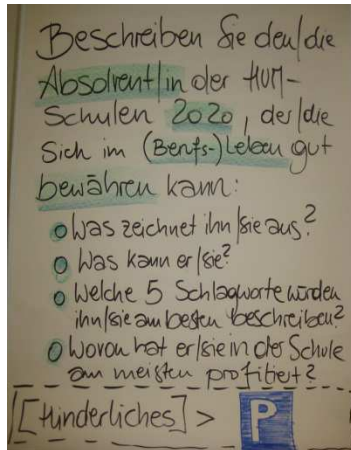 Beschreiben Sie den/die
Absolvent/in der HUM-
Schulen 2020, der/die
Sich im (Berufs-)Leben gut
bewähren kann:
Was zeichnet ihn/sie aus?
Was kann er/sie?
Welche 5 Schlagworte würden
ihn/sie am besten beschreiben?
Wovon hat er/sie in der Schule
am meisten profitiert?
[Hinderliches] > P